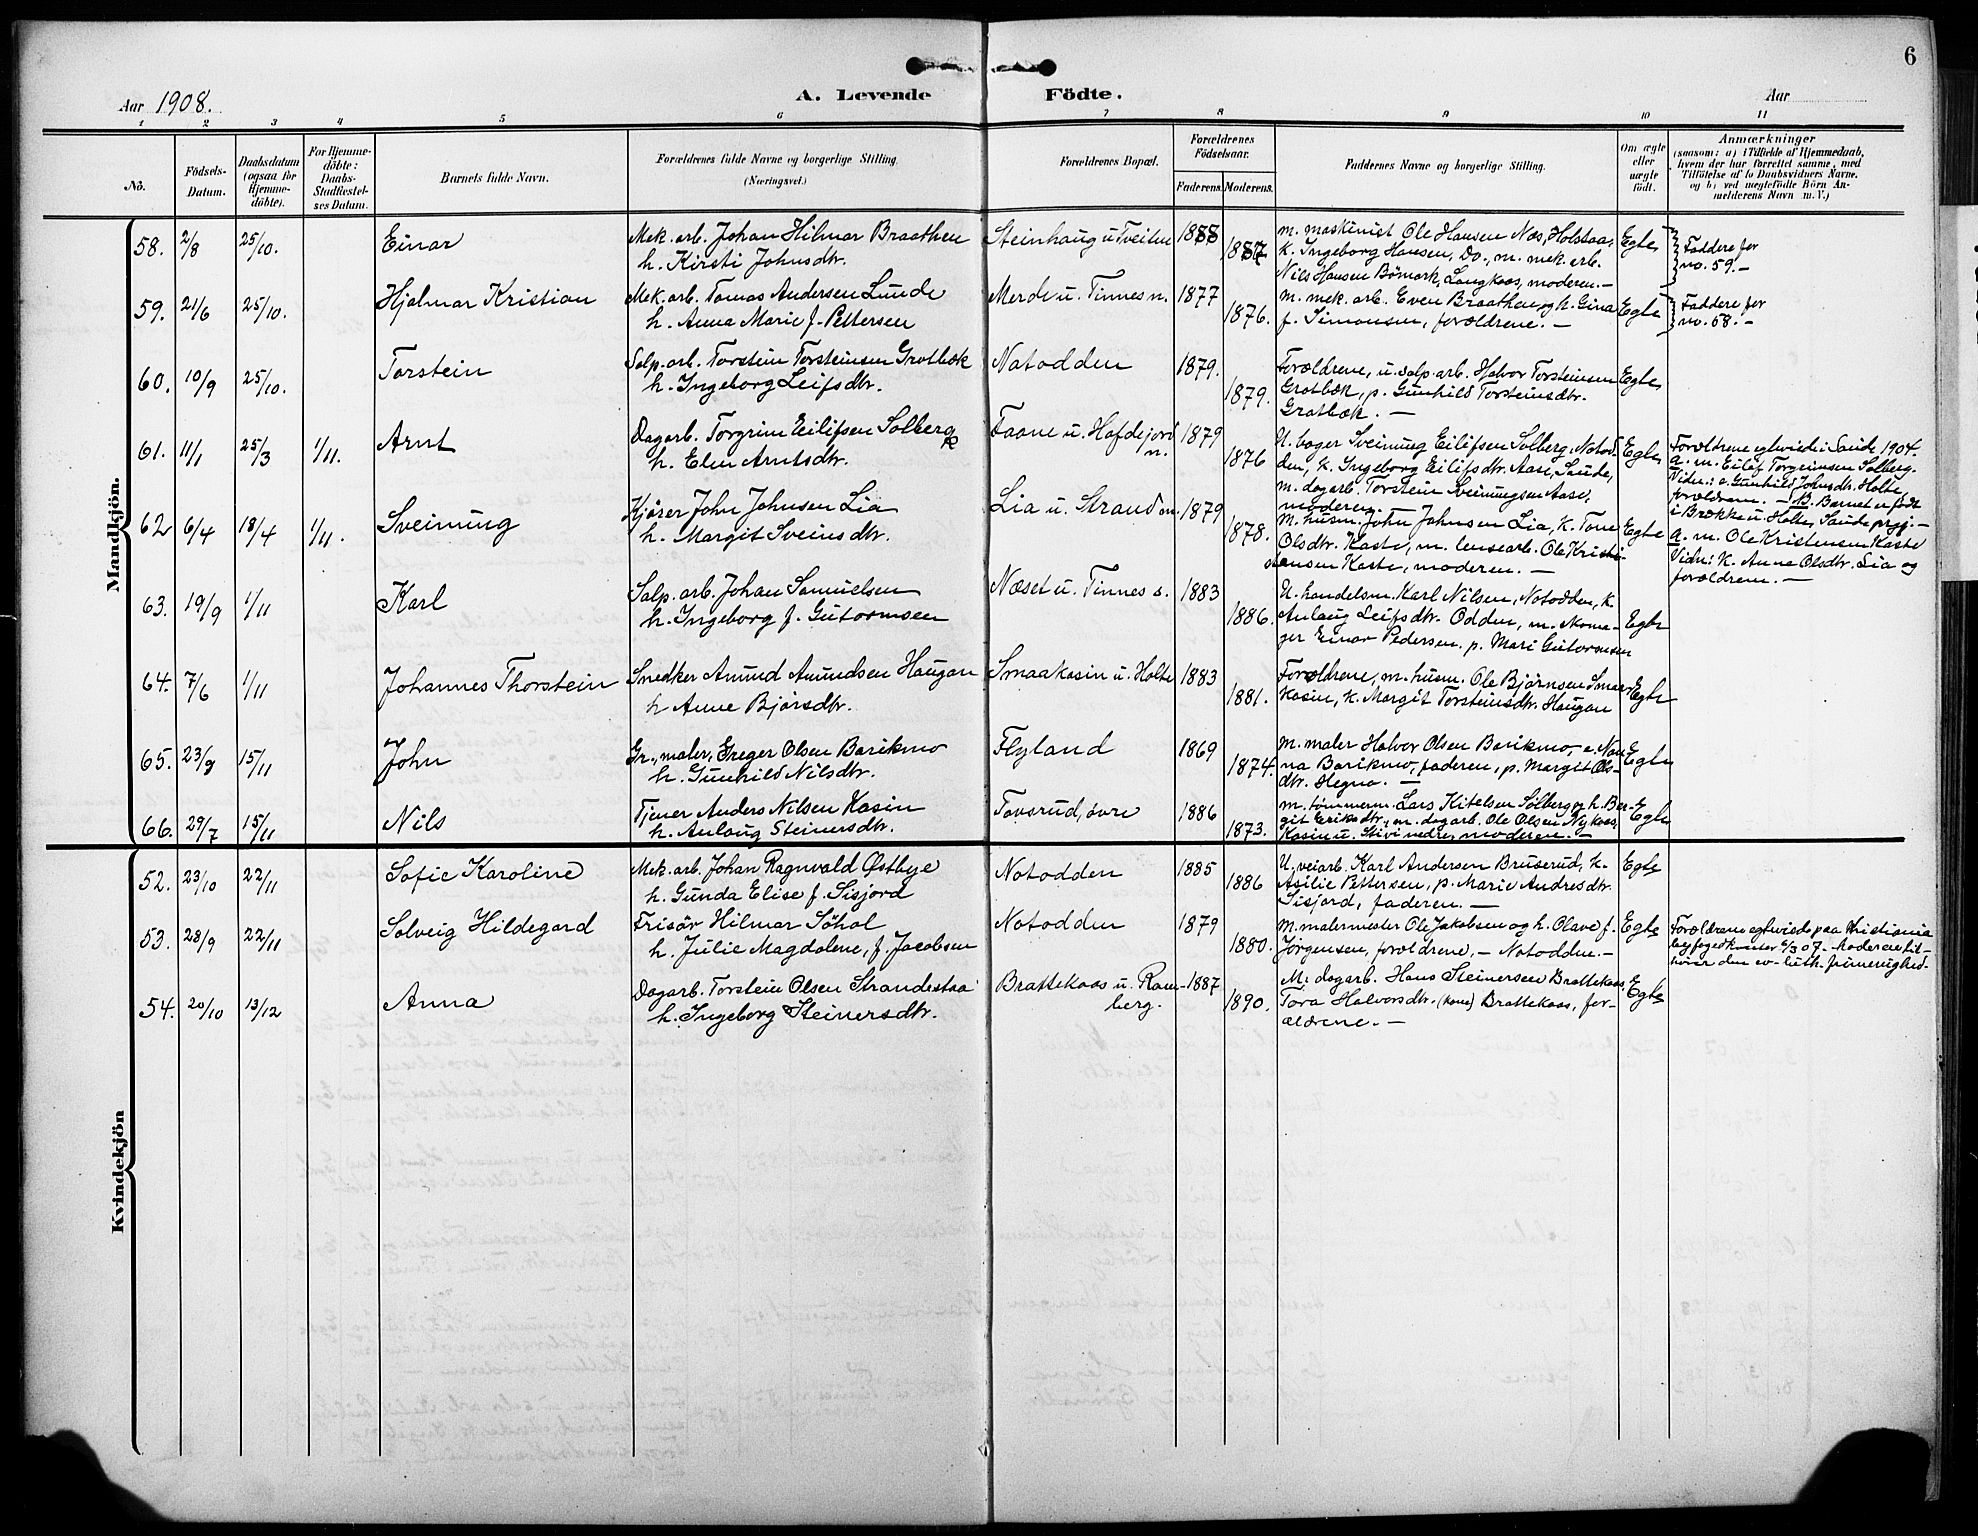 6
Aar 1908.
A. Levende Födte.
Aar
1 2 3 4 5 6 7 8 9 10 11
No.
Födsels-Datum.
Daabsdatum (ogsaa for Hjemme-döbte).
For Hjemme-döbte: Daabs-Stadfæstel-ses Datum.
Barnets fulde Navn.
Forældrenes fulde Navne og borgerlige Stilling. (Næringsvei.)
Forældrenes Bopæl.
Forældrenes Födselsaar.
Faderens. Moderens.
Faddernes Navne og borgerlige Stilling.
Om ægte eller uægte födt.
Anmærkninger
(saasom: a) i Tilfælde af Hjemmedaab,
hvem der har forrettet samme, med
Tilföielse af to Daabsvidners Navne.
og b) ved uægtefödte Börn An-
melderens Navn m. V.)
Mandkjön.
58. 2/8 25/10. Einar
Mek. arb. Johan Hilmar Braathen
h. Kirsti Johnsdtr.
Steinhaug u. Tveiten 1888 1887
m. maskinist Ole Hansen Næs, Holstaas,
k. Ingeborg Hansen, Do., m. mek. arb.
Nils Hansen Bömark, Langkaas, moderen.—
Egte
Faddere for
no. 59.—
59. 21/6 25/10. Hjalmar Kristian
Mek. arb. Tomas Andersen Lunde
h. Anna Marie f. Pettersen
Merde u. Tinnes n. 1877 1876.
m. mek. arb. Even Braathen og h. Gina
f. Simonsen, forældrene.—
Egte
Faddere for
no. 58.—
60. 10/9 25/10. Torstein
Salp. arb. Torstein Torsteinsen Grotbæk
h. Ingeborg Leifsdtr.
Notodden 1879. 1879.
Forældrene, u. salp. arb. Halvor Torsteinsen
Grotbæk, p. Gunhild Torsteinsdtr.
Grotbæk.—
Egte
61. 11/1 25/3 1/11. Arnt
Dagarb. Torgrim Eilifsen Solberg
h. Elen Arntsdtr.
Faane u. Hafdejord n. 1879 1876
U. bager Sveinung Eilifsen Solberg, Notod-
den, k. Ingeborg Eilifsdtr. Aase, Saude,
m. dagarb. Torstein Sveinungsen Aase,
moderen.
Egte
Forældrene egteviede i Saude 1904.
a. m. Eilef Torgrimsen Solberg.
Vidn.: a. Gunhild Johnsdtr. Holte,
forældrene.— B. Barnet er födt
i Brække u. Holte, Saude prgj.—
62 6/4 18/4 1/11. Sveinung
Kjörer John Johnsen Lia
h. Margit Sveinsdtr.
Lia u. Strand ön. 1879 1878.
m. husm. John Johnsen Lia, k. Tone
Olsdtr. Kaste, m. lensearb. Ole Kristi-
ansen Kaste, moderen.—
Egte
a. m. Ole Kristensen Kaste
Vidn: k. Anne Olsdtr. Lia og
forældrene.—
63. 19/9 1/11 Karl
Salp. arb. Johan Samuelsen
h. Ingeborg f. Gutormsen
Næset u. Tinnes s. 1883 1886.
U. handelsm. Karl Nilsen, Notodden, k.
Anlaug Leifsdtr. Odden, m. skoma-
ger Einar Pedersen, p. Mari Gutormsen
Egte
64. 7/6 1/11 Johannes Thorstein
Snedker Amund Amundsen Haugan
h Anne Bjørsdtr.
Smaakasin u. Holte 1883 1881.
Forældrene, m. husm. Ole Bjørnsen Smaa-
kasin, k. Margit Torsteinsdtr. Haugan
Egte
65. 23/9 15/11 John
Gr., maler, Greger Olsen Barikmo
h. Gunhild Nilsdtr.
Flyland 1869 1874.
m. maler Halvor Olsen Barikmo, a. Nan-
na Barikmo, faderen, p. Margit Ols-
dtr. Hegna.—
Egte
66. 29/7 15/11 Nils
Tjener Anders Nilsen Kasin
h. Anlaug Steinersdtr.
Tovsrud, övre 1886 1873.
m. tømmerm. Lars Kitelsen Sølberg og h. Ber-
git Eriksdtr., m. dagarb. Ole Olsen Nykaas,
Kasin u. Stivi nedre, moderen.—
Egte
Kvindekjön
52. 23/10 22/11 Sofie Karoline
Mek. arb. Johan Ragnvald Østbye
h. Gunda Elise f. Sisjord
Notodden 1885 1886
U. veiarb. Karl Andersen Bruserud, k.
Asilie Pettersen, p. Marie Andresdtr.
Sisjord, faderen.—
Egte
53. 28/9 22/11 Solveig Hildegard
Frisör Hilmar Söhol
h. Julie Magdalene, f. Jacobsen
Notodden 1879 1880.
m. malermester Ole Jakobsen og h. Olave f.
Jørgensen, forældrene,— Notodden.—
Egte
Forældrene egteviede paa Kristiania
byfogedkontor 6/3 07.— moderen til-
hører den ev-luth. frimenighed.
54. 20/10 13/12 Anna
Dagarb. Torstein Olsen Strandestaa
h. Ingeborg Steinersdtr.
Brattekaas u. Ram-
berg. 1887 1890.
M. dagarb. Hans Steinersen Brattekaas,
Tora Halvorsdtr. (kone) Brattekaas, for-
ældrene.—
Egte